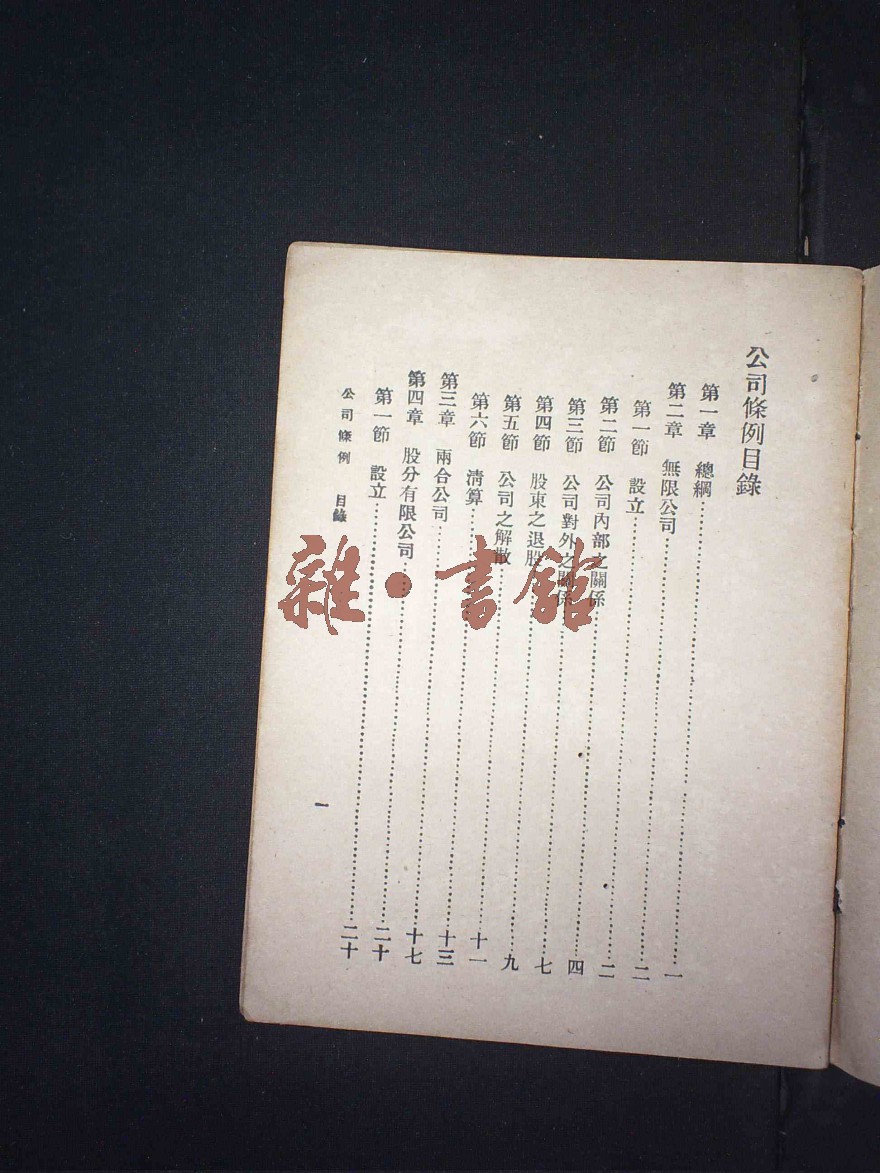 公司條例目錄
第一章 總綱……一
第二章 無限公司……二
第一節 設立……二
第二節 公司內部之關係……四
第三節 公司對外之關係……七
第四節 股東之退股……九
第五節 公司之解散……十一
第六節 清算……十三
第三章 兩合公司……十七
第四章 股分有限公司……二十
第一節 設立……二十
公司條例 目錄
一
雜·書館